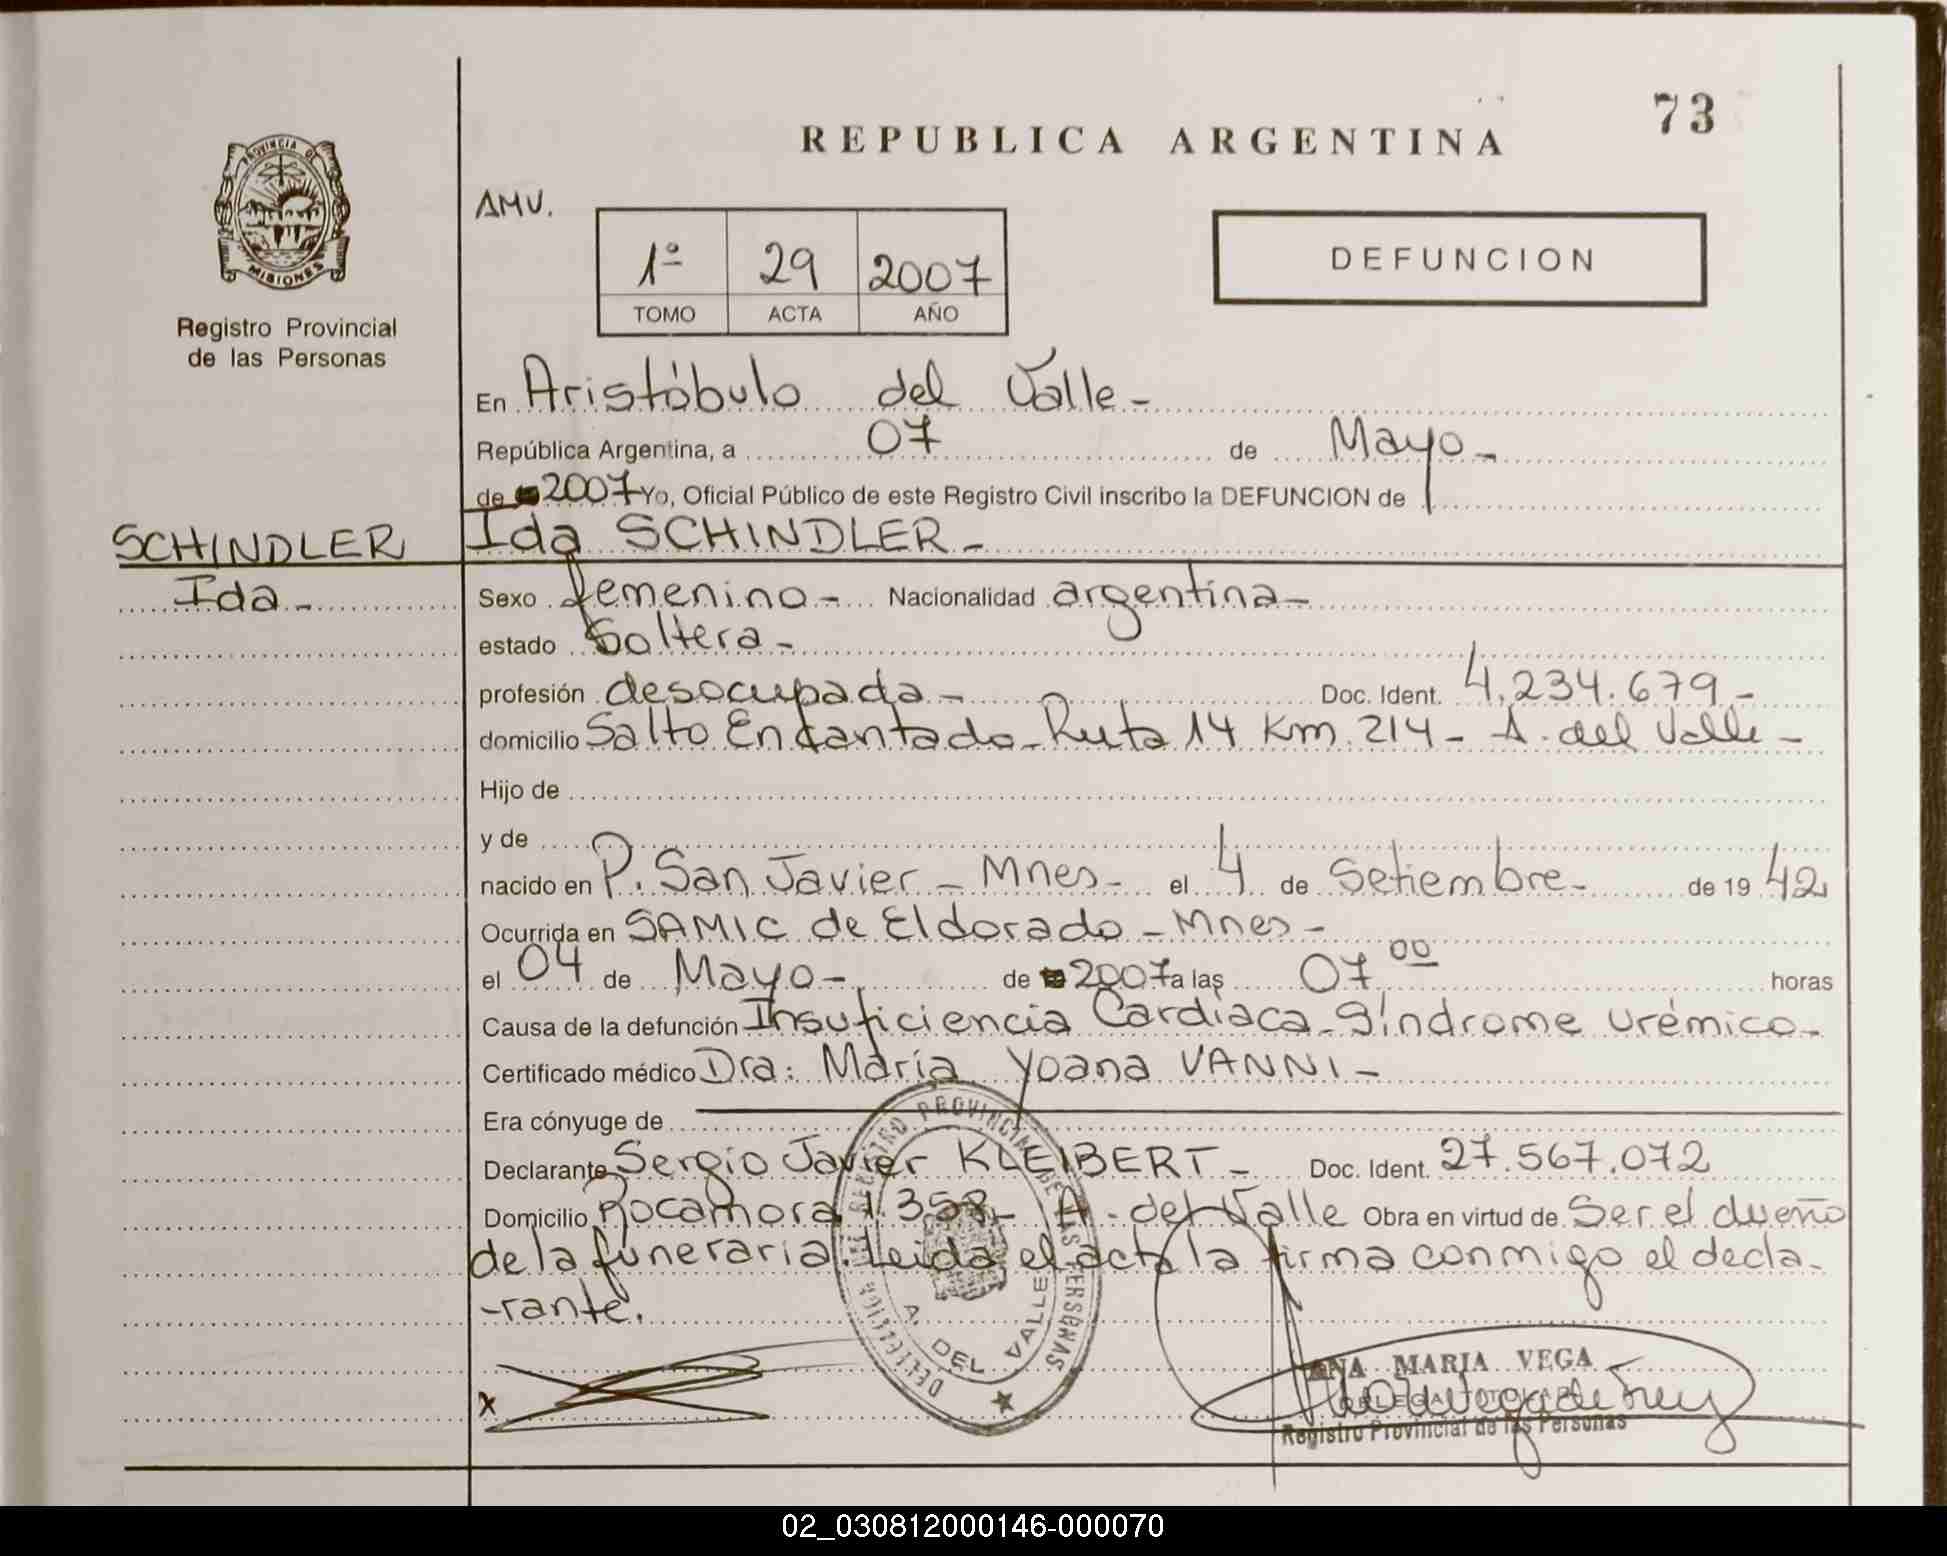 73
REPUBLICA ARGENTINA
PROVINCIA DE
MISIONES
Registro Provincial
de las Personas
AMV.
1º 29 2007
TOMO ACTA AÑO
DEFUNCION
En Aristóbulo del Valle-
República Argentina, a 07 de Mayo-
de 2007 Yo, Oficial Público de este Registro Civil inscribo la DEFUNCION de
SCHINDLER Ida SCHINDLER-
Ida- Sexo femenino- Nacionalidad argentina-
estado Soltera-
profesión desocupada- Doc. Ident. 4.234.679-
domicilio Salto Encantado- Ruta 14 Km 214- A. del Valle-
Hijo de
y de
nacido en P. San Javier- Mnes- el 4 de Setiembre- de 19 42
Ocurrida en SAMIC de Eldorado- Mnes-
el 04 de Mayo- de 2007 a las 07 00 horas
Causa de la defunción Insuficiencia Cardíaca- Síndrome urémico-
Certificado médico Dra: María Yoana VANNI-
Era cónyuge de
Declarante Sergio Javier KLEIBERT- Doc. Ident. 27.567.072
Domicilio Rocamora 1.358- A. del Valle Obra en virtud de Ser el dueño
de la funeraria. Leída el acta la firma conmigo el decla-
-rante.
REGISTRO PROVINCIAL DE LAS PERSONAS
A. DEL VALLE
x
ANA MARIA VEGA
Registro Provincial de las Personas
02_030812000146-000070